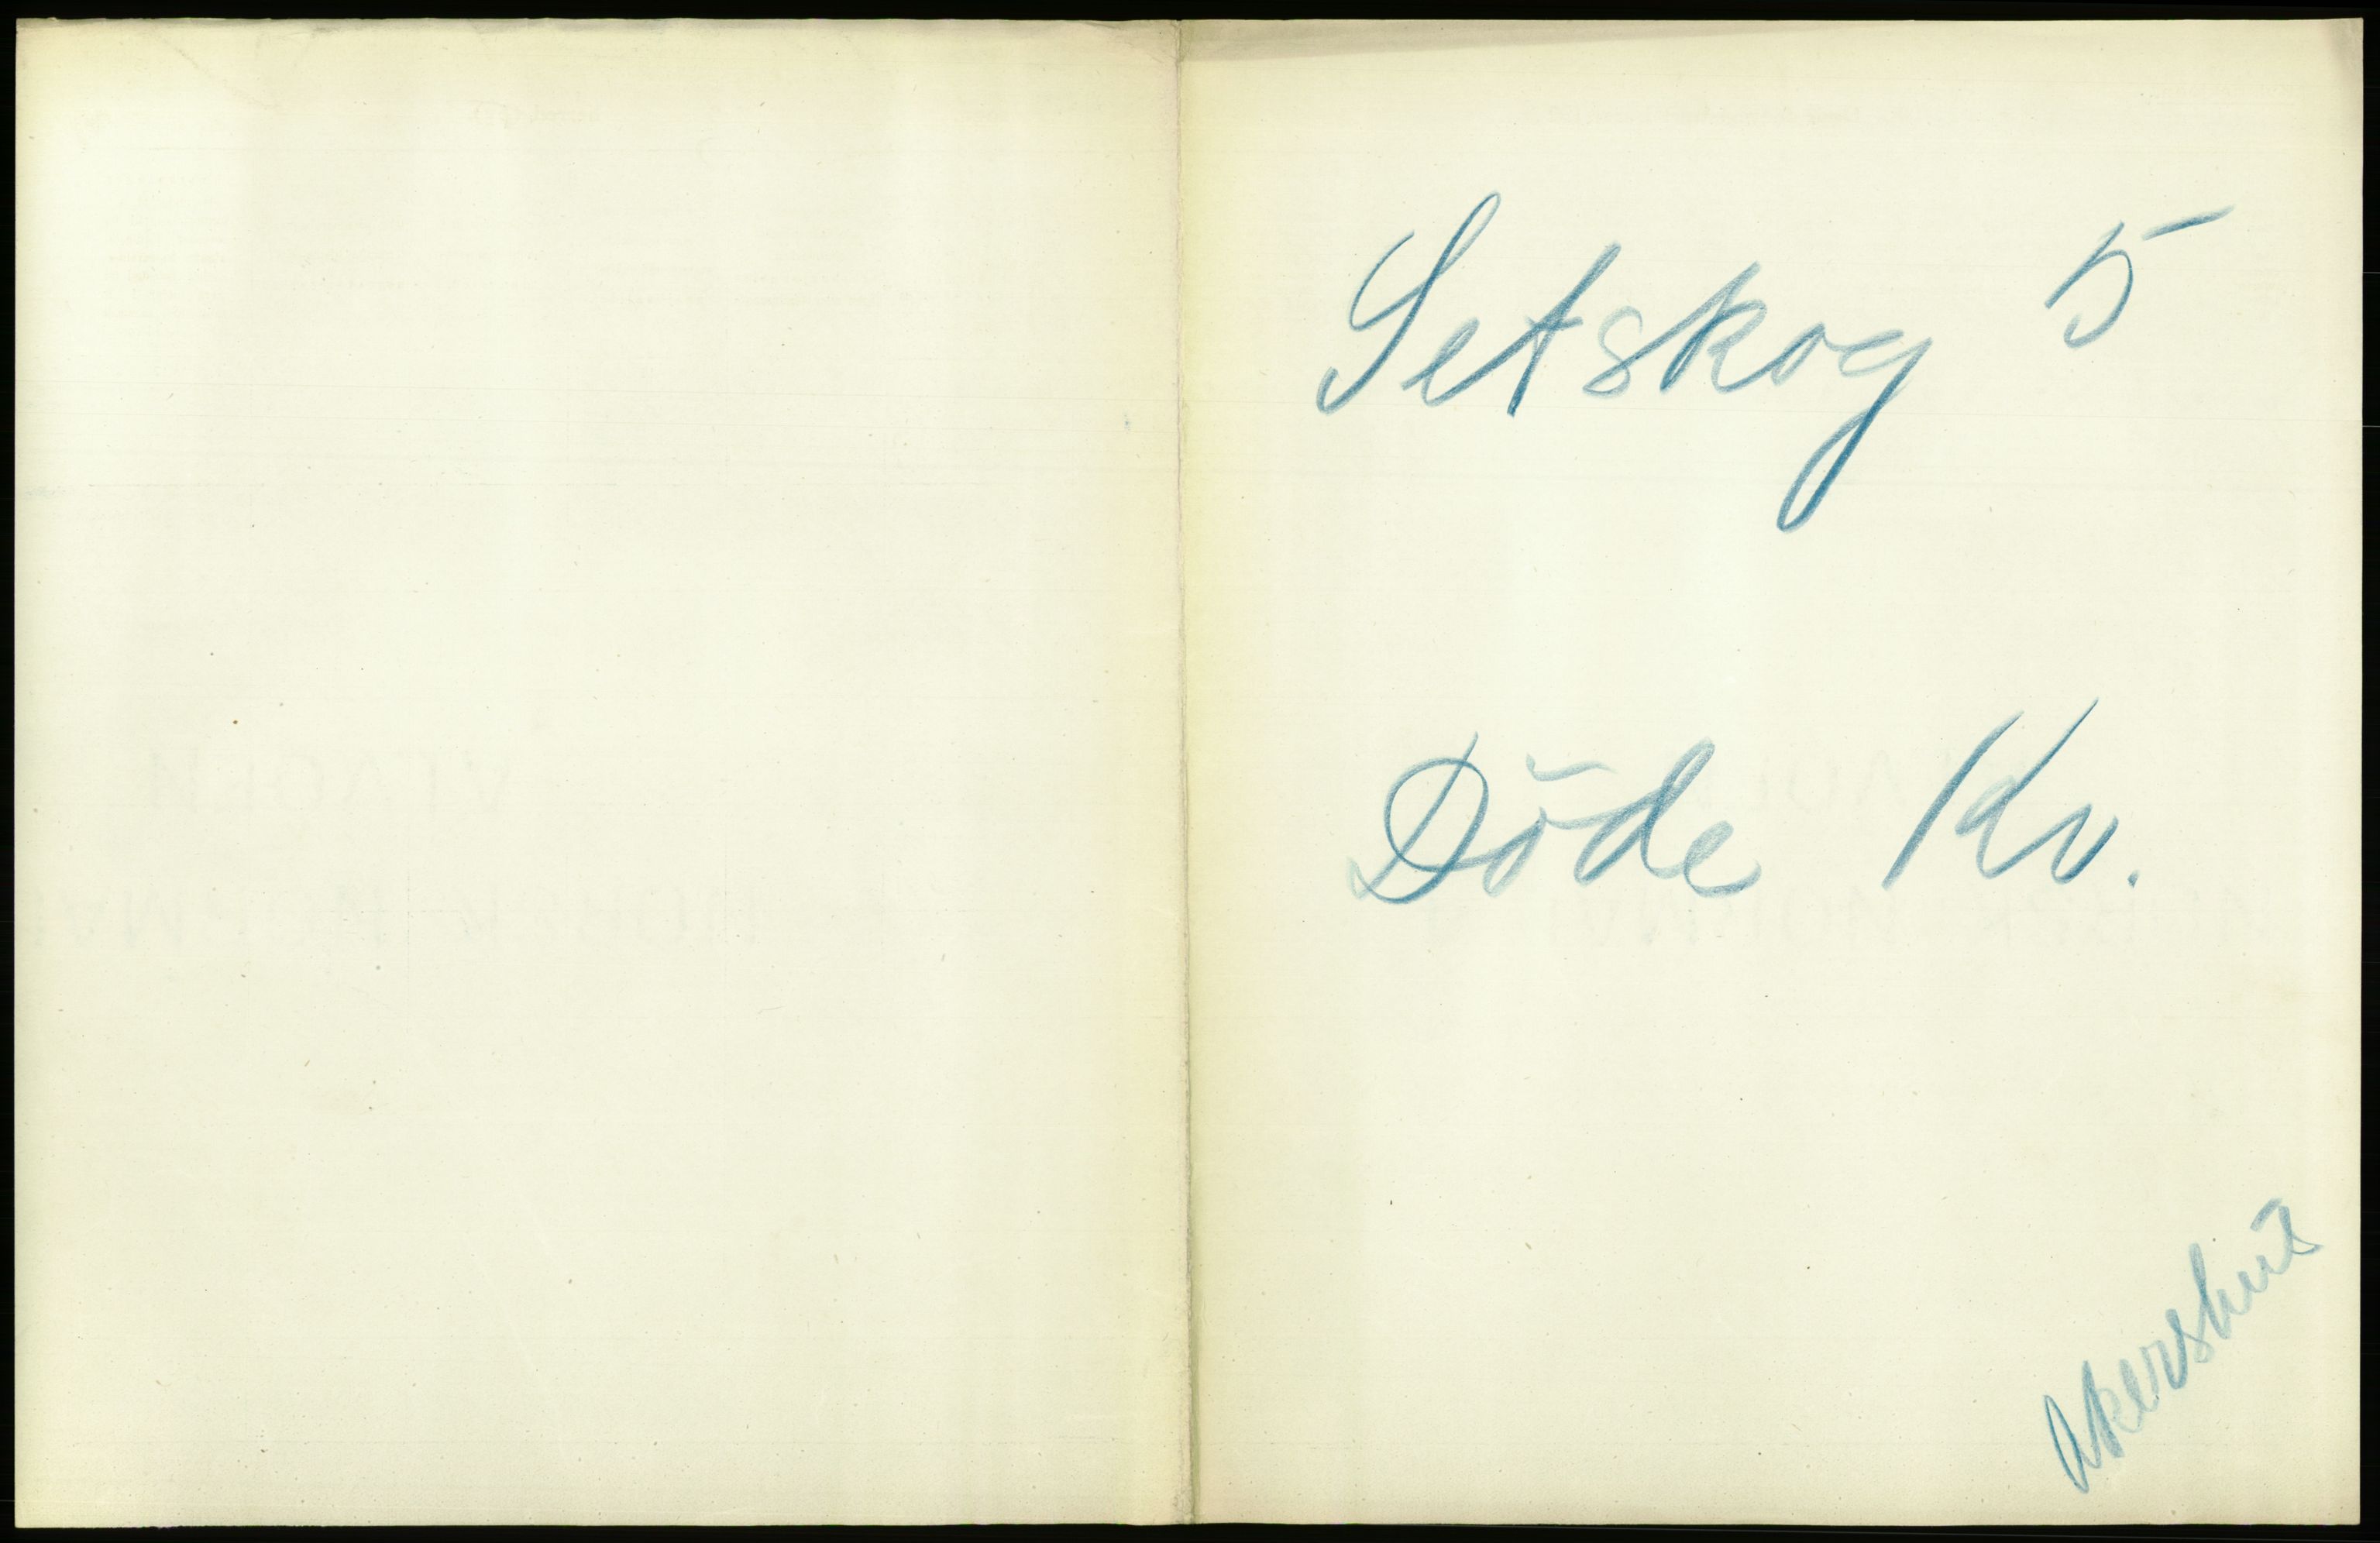 Setskog 5
Døde Kv.
Akershus